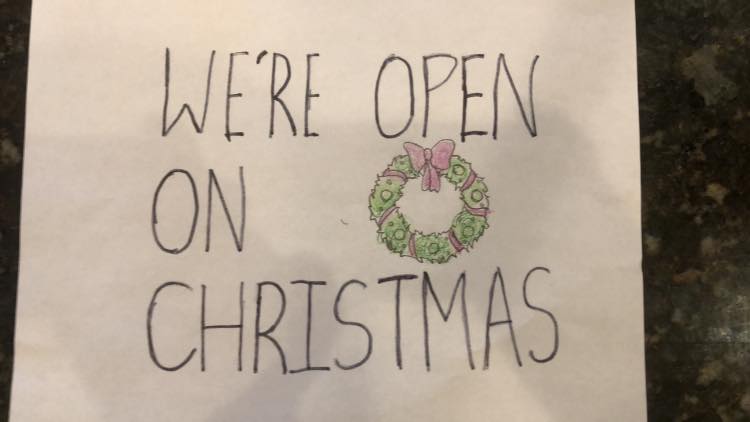 WE'RE OPEN
ON
CHRISTMAS